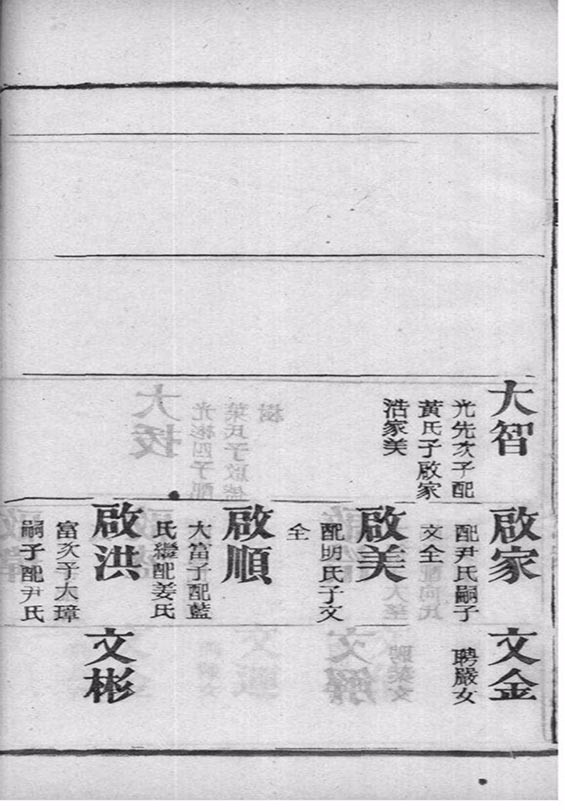 大智
光先次子配
黃氏子啟家
浩家美
啟家
配尹氏嗣子
文全
啟美
配明氏子文
全
啟順
大富子配藍
氏繼配姜氏
啟洪
富次子大璋
嗣子配尹氏
文金
聘嚴女
文彬